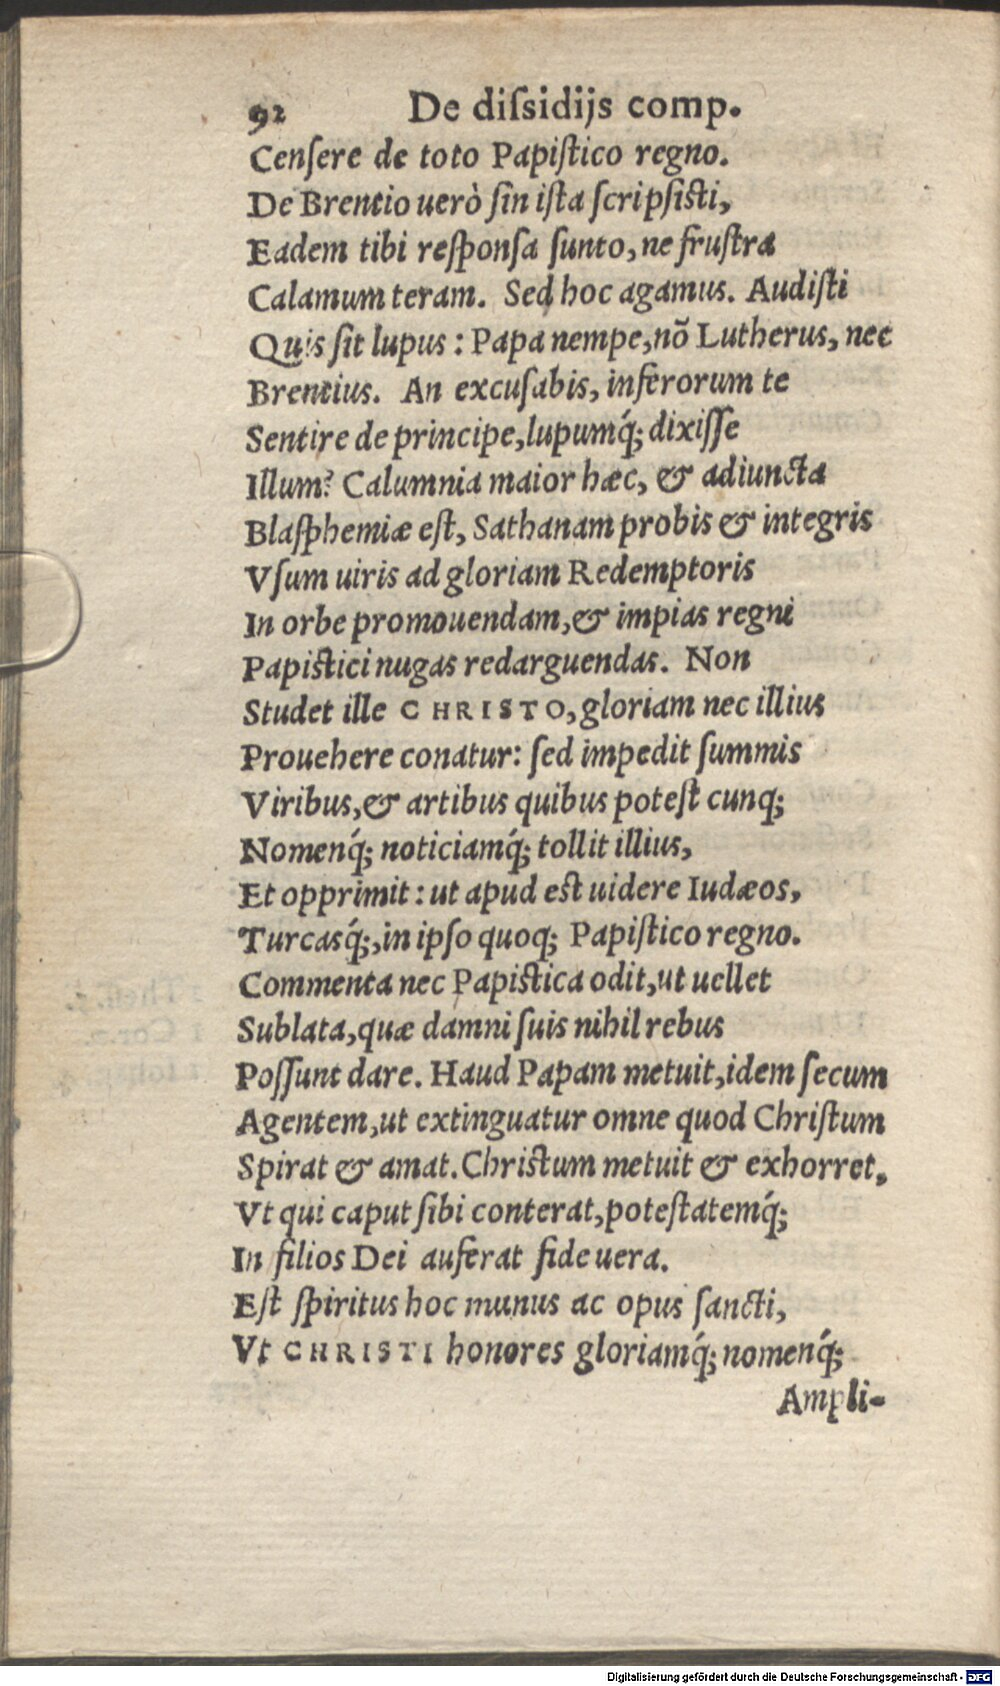 92 De diſsidijs comp.
Cenſere de toto Papiſtico regno.
De Brentio uerò ſin iſta ſcripſisti,
Eadem tibi reſponſa ſunto, ne fruſtra
Calamum teram. Sed hoc agamus. Audiſti
Quis ſit lupus: Papa nempe, nõ Lutherus, nec
Brentius. An excuſabis, inferorum te
Sentire de principe, lupumq́; dixiſſe
Illum? Calumnia maior hæc, & adiuncta
Blaſphemiæ eſt, Sathanam probis & integris
Vſum uiris ad gloriam Redemptoris
In orbe promouendam, & impias regni
Papistici nugas redarguendas. Non
Studet ille CHRISTO, gloriam nec illius
Prouehere conatur: ſed impedit ſummis
Viribus, & artibus quibus poteſt cunq;
Nomenq́; noticiamq́; tollit illius,
Et opprimit: ut apud est uidere Iudæos,
Turcasq́;, in ipſo quoq; Papiſtico regno.
Commenta nec Papistica odit, ut uellet
Sublata, quæ damni ſuis nihil rebus
Poſſunt dare. Haud Papam metuit, idem ſecum
Agentem, ut extinguatur omne quod Chriſtum
Spirat & amat. Christum metuit & exhorret,
Vt qui caput ſibi conterat, poteſtatemq́;
In filios Dei auferat fide uera.
Eſt ſpiritus hoc munus ac opus ſancti,
Vt CHRISTI honores gloriamq́; nomenq́;
Ampli-
Digitalisierung gefördert durch die Deutsche Forschungsgemeinschaft - DFG